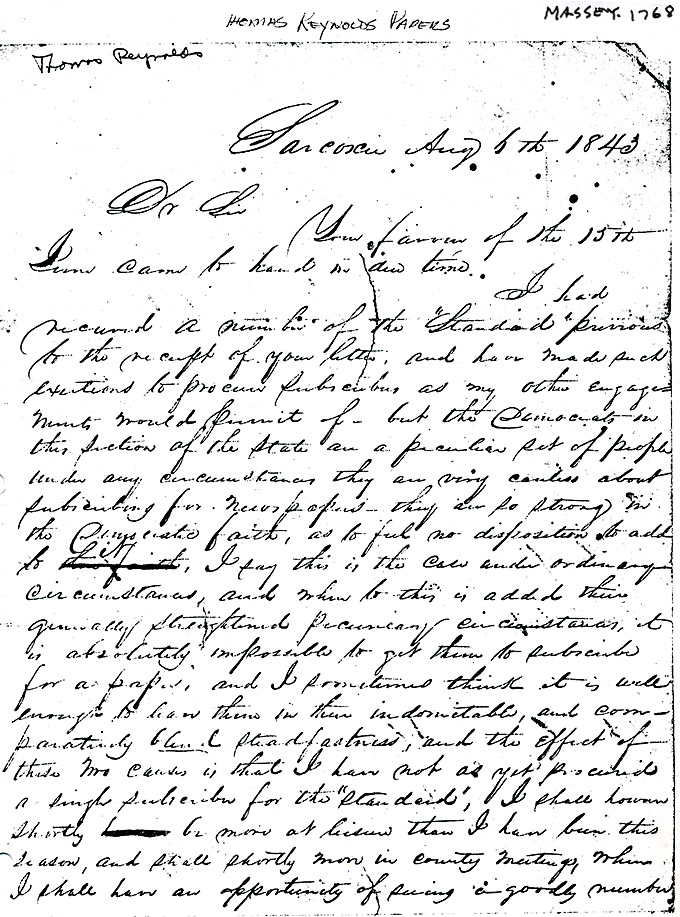 THOMAS REYNOLDS PAPERS
MASSEY. 1768
Thomas Reynolds
Sarcoxie Aug 6th 1843
Dr Sir
Your favour of the 15th
June came to hand in due time.
I had
received a number of the "Standard" previous
to the receipt of your letter, and have made such
exertions to procure subscribers as my other engage-
ments would permit of - but the Democrats in
this section of the State are a peculiar set of people
under any circumstances they are very careless about
subscribing for newspapers - they are so strong in
the Democratic faith, as to feel no disposition to add
to it, I say this is the case under ordinary
circumstances, and when to this is added their
generally straightened pecuniary circumstances, it
is absolutely impossible to get them to subscribe
for a paper, and I sometimes think it is well
enough to leave them in their indomitable, and com-
paratively blind steadfastness, and the effect of
these two causes is that I have not as yet procured
a single subscriber for the "Standard", I shall however
shortly be more at leisure than I have been this
season, and shall shortly more in county meetings, when
I shall have an opportunity of seeing a goodly number